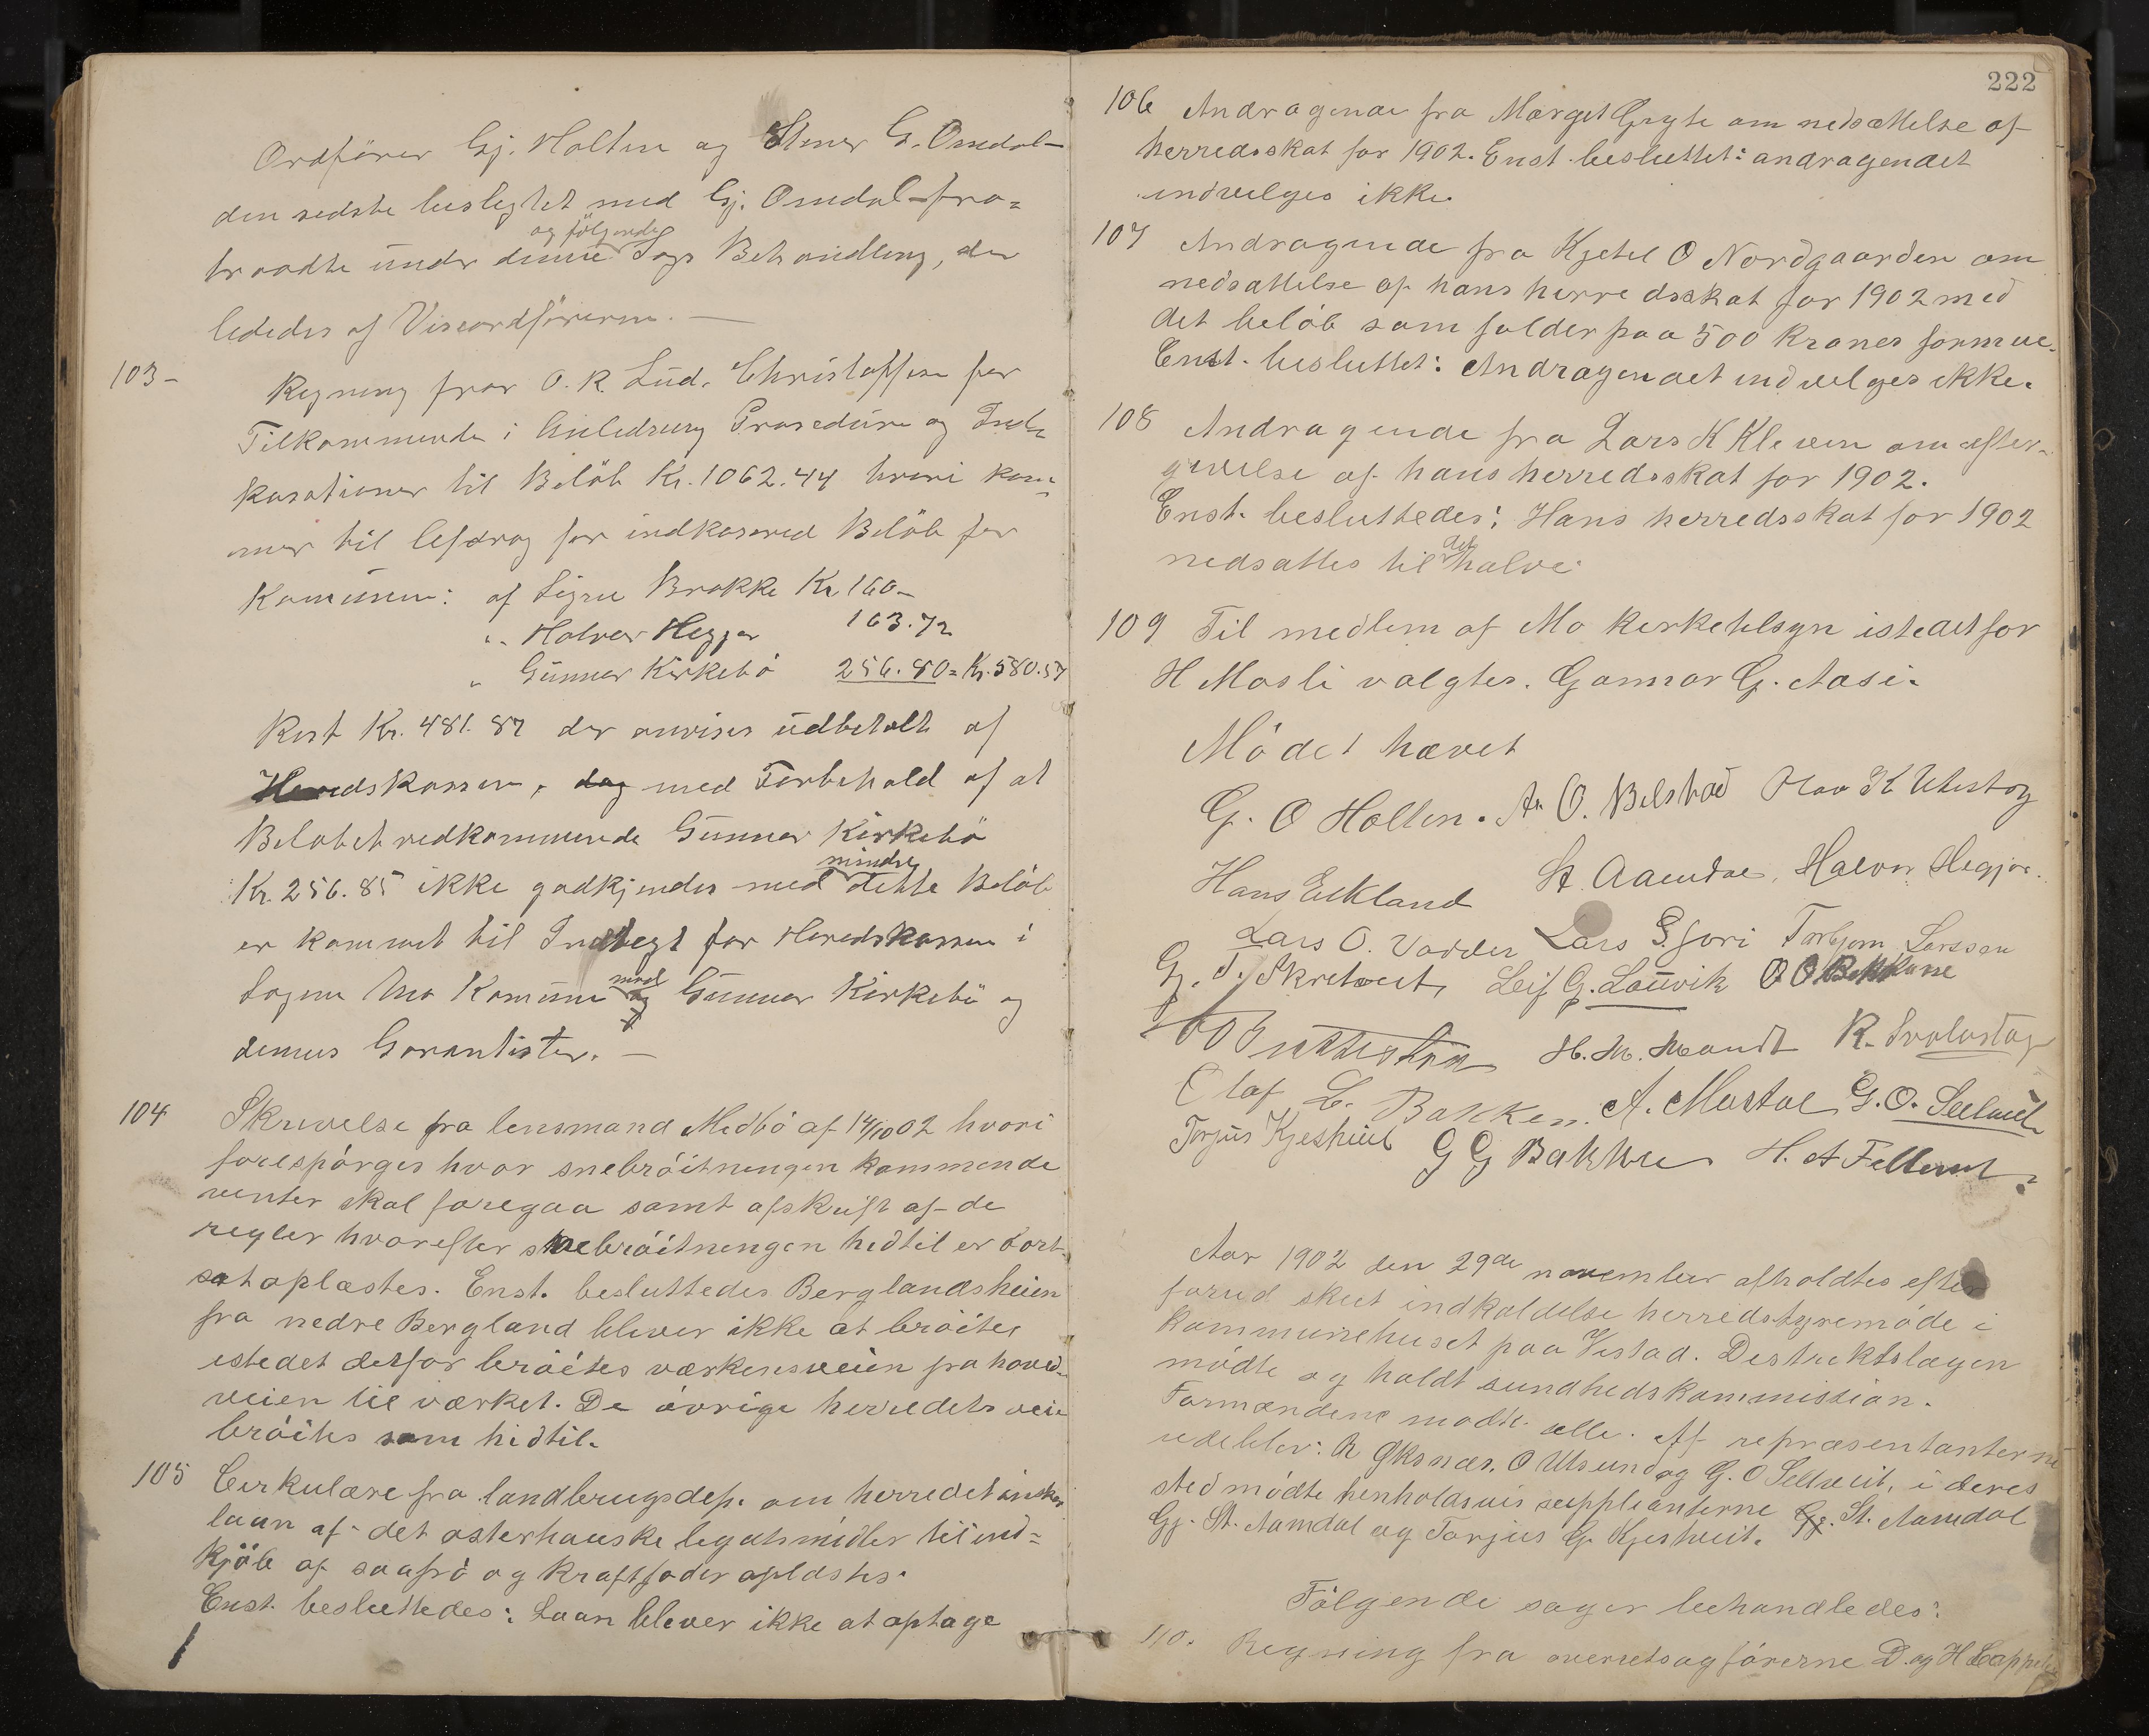 Ordfører Gj. Holten og Stener G. Omdal –
den sidste beslegtet med Gj. Omdal – fra=
og følgende
traadte under denne Sags Behandling, der
lededes af Viceordføreren. –
103 – Regning fra O. R. Lud. Christoffersen for
Tilkommende i Anledning Procedure og Ind=
kasationer til Beløb Kr. 1062.44 hvori kom=
mer til Afdrag for indkasered Beløb for
Komunen: af Signe Brokke Kr. 160 –
" Halvor Heggar 163.72
" Gunnar Kirkebø 256.80 = Kr. 580.57
Rest Kr. 481.87 der anvises udbetalt af
Heredskassen, dog med Forbehold af at
Beløbet vedkommende Gunnar Kirkebø
mindre
Kr. 256.85 ikke godkjendes med dette Beløb
er kommet til Indtegt for Heredskassen i
mod
Sagen Mo Komune og Gunnar Kirkebø og
dennes Garantister. –
104 Skrivelse fra lensmand Medbø af 14/10 02 hvori
forespørges hvor snebrøitningen kommende
vinter skal foregaa samt afskrift af de
regler hvorefter snebrøitningen hidtil er bort-
sat oplæstes. Enst. besluttedes Berglandsheien
fra nedre Bergland bliver ikke at brøites
istedet derfor brøites værkensveien fra hoved-
veien til værket. De øvrige herredets veie
brøites som hidtil.
105 Cirkulære fra landbrugsdep. om herredet ønsker
laan af det osterhauske legatsmidler til ind=
kjøb af saafrø og kraftfoder oplæstes.
Enst. besluttedes: Laan bliver ikke at optage
222
106 Andragende fra Margit Gryte om nedsættelse af
herredsskat for 1902. Enst. besluttet: andragendet
indvilges ikke.
107 Andragende fra Kjetil O Nordgaarden om
nedsættelse af hans herredsskat for 1902 med
det beløb som falder paa 500 kroners formue.
Enst. besluttet: Andragendet indvilges ikke.
108 Andragende fra Lars K Kleven om efter-
givelse af hans herredsskat for 1902.
Enst. besluttedes: Hans herredsskat for 1902
det
nedsattes til halve.
109 Til medlem af Mo kirketilsyn istedetfor
H Mosli valgtes. Gunnar G. Aase.
Mødet hævet
G. O Holten. A O. Bilstad Olav K Utistog
Hans Eikland St. Aamdal, Halvor Hegjar.
Lars O. Vadder Lars S. Juri Torbjorn Larssen
G. T. Skretveit, Leif G. Lauvik O O Bakkane
H. M. Mandt R. Svalastog
Olaf L. Bakken. A. Mostøl G. O. Seltveit
Torjus Kjestveit G G Bakken H. A Felland.
Aar 1902 den 29de november afholdtes efter
forud skeet indkaldelse herredstyremøde i
kommunehuset paa Vistad. Distriktslægen
mødte og holdt sundhedskommission.
Formændene mødte alle. Af repræsentanterne
udeblev: R Øksnes, O Utsund og G. O Seltveit, i deres
sted mødte henholdsvis suppleanterne Gj. St. Aamdal
Gj. St. Aamdal og Torjus G. Kjestveit.
Følgende sager behandledes:
110. Regning fra overretsagførerne D. og H Cappelen